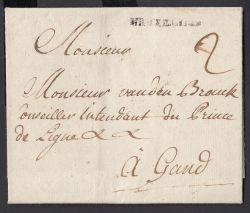 BRUXELLES
Monsieur
2
Monsieur vanden Brouck
Conseiller intendant du Prince
de Ligne & &
à Gand